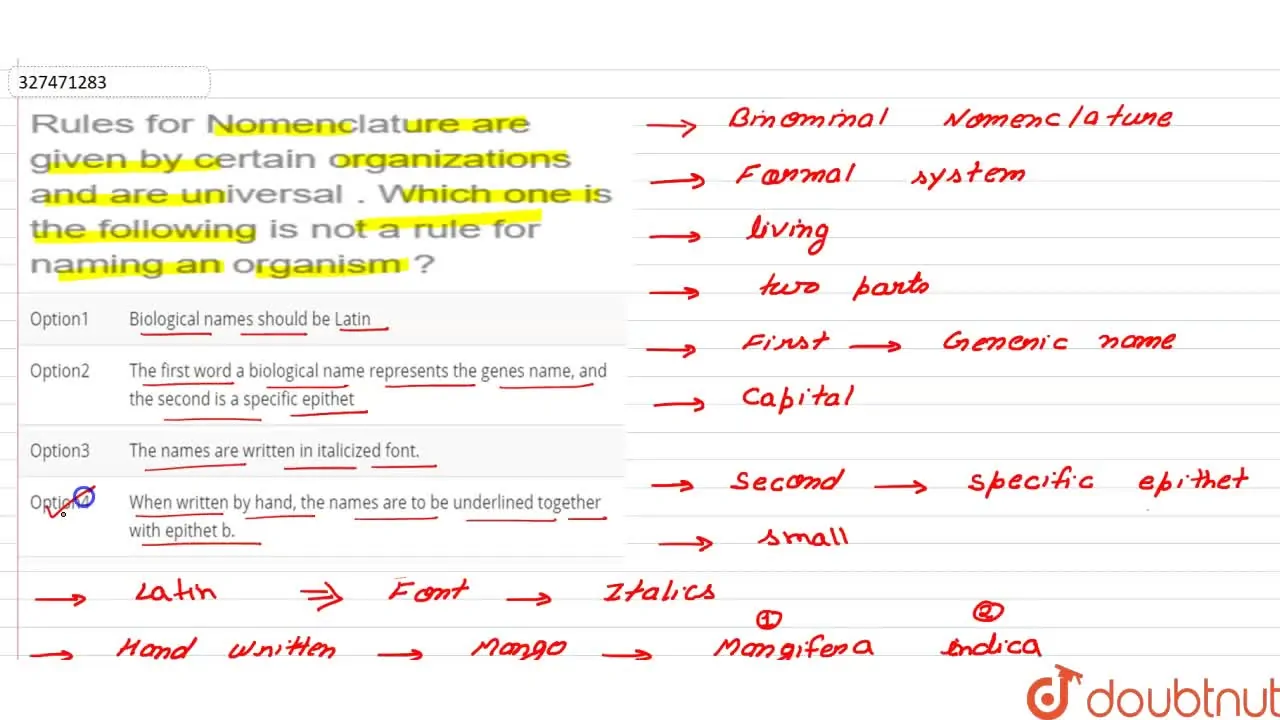 327471283
Rules for Nomenclature are
given by certain organizations
and are universal . Which one is
the following is not a rule for
naming an organism ?
Option1 Biological names should be Latin
Option2 The first word a biological name represents the genes name, and
the second is a specific epithet
Option3 The names are written in italicized font.
Option4 When written by hand, the names are to be underlined together
with epithet b.
→ Binominal Nomenclature
→ Formal system
→ living
→ two parts
→ First → Generic name
→ Capital
→ Second → specific epithet
→ small
→ Latin ⇒ Font → Italics
① ②
→ Hand written → Mango → Mangifera indica
doubtnut